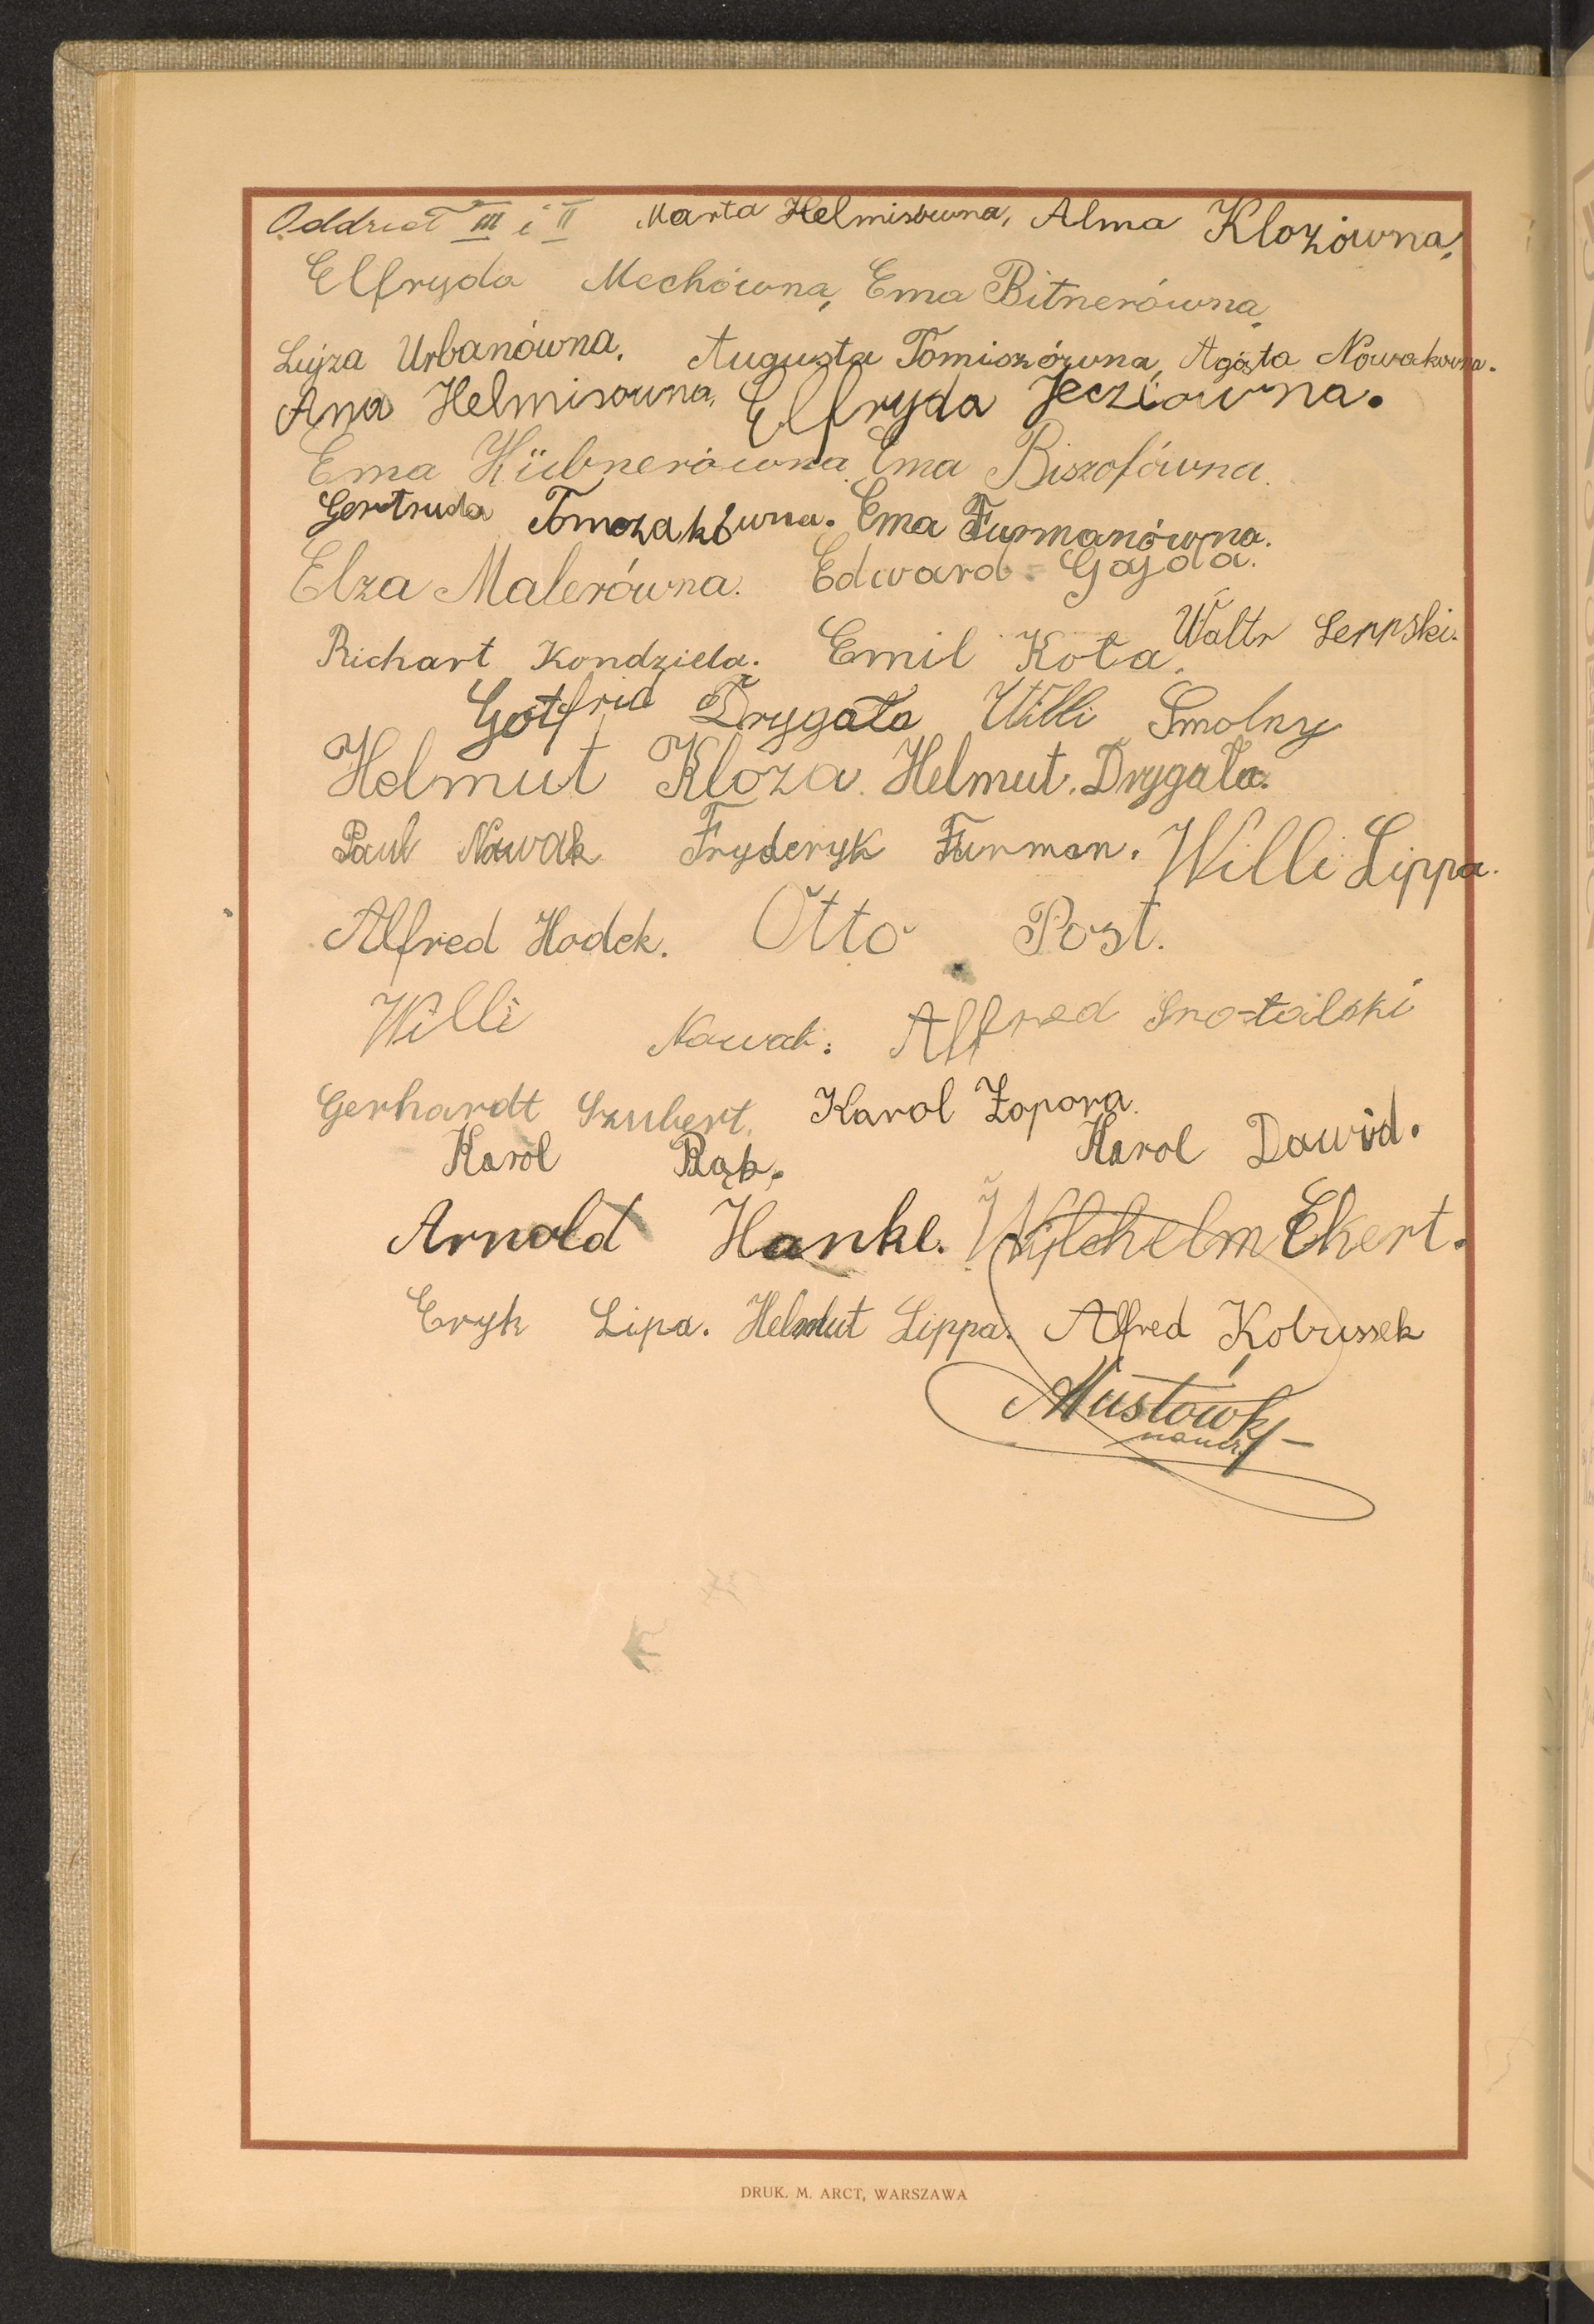 Oddział III i II Marta Helmisówna, Alma Klozówna,
Elfryda Mechówna, Ema Bitnerówna,
Lujza Urbanówna. Augusta Tomiszówna, Agósta Nowakowna.
Ana Helmisowna, Elfryda Jecziowna.
Ema Hübnerówna. Ema Biszofówna.
Gertruda Tomczakówna. Ema Furmanówna.
Elza Malerówna. Edward Gajda.
Richart Kondziela. Emil Kota. Waltr Seppski.
Gotfrid Drygała Willi Smolny
Helmut Kloza. Helmut. Drygała.
Paul Nowak Fryderyk Furman. Willi Lippa.
Alfred Hodek. Otto Post.
Willi Nowak. Alfred
Gerhardt Szubert. Karol Zopora.
Karol Bąk. Karol Dawid.
Arnold Hanke. Wylchelm Ekert.
Eryk Lipa. Helmut Lippa. Alfred Kobussek
naucz.
DRUK. M. ARCT, WARSZAWA